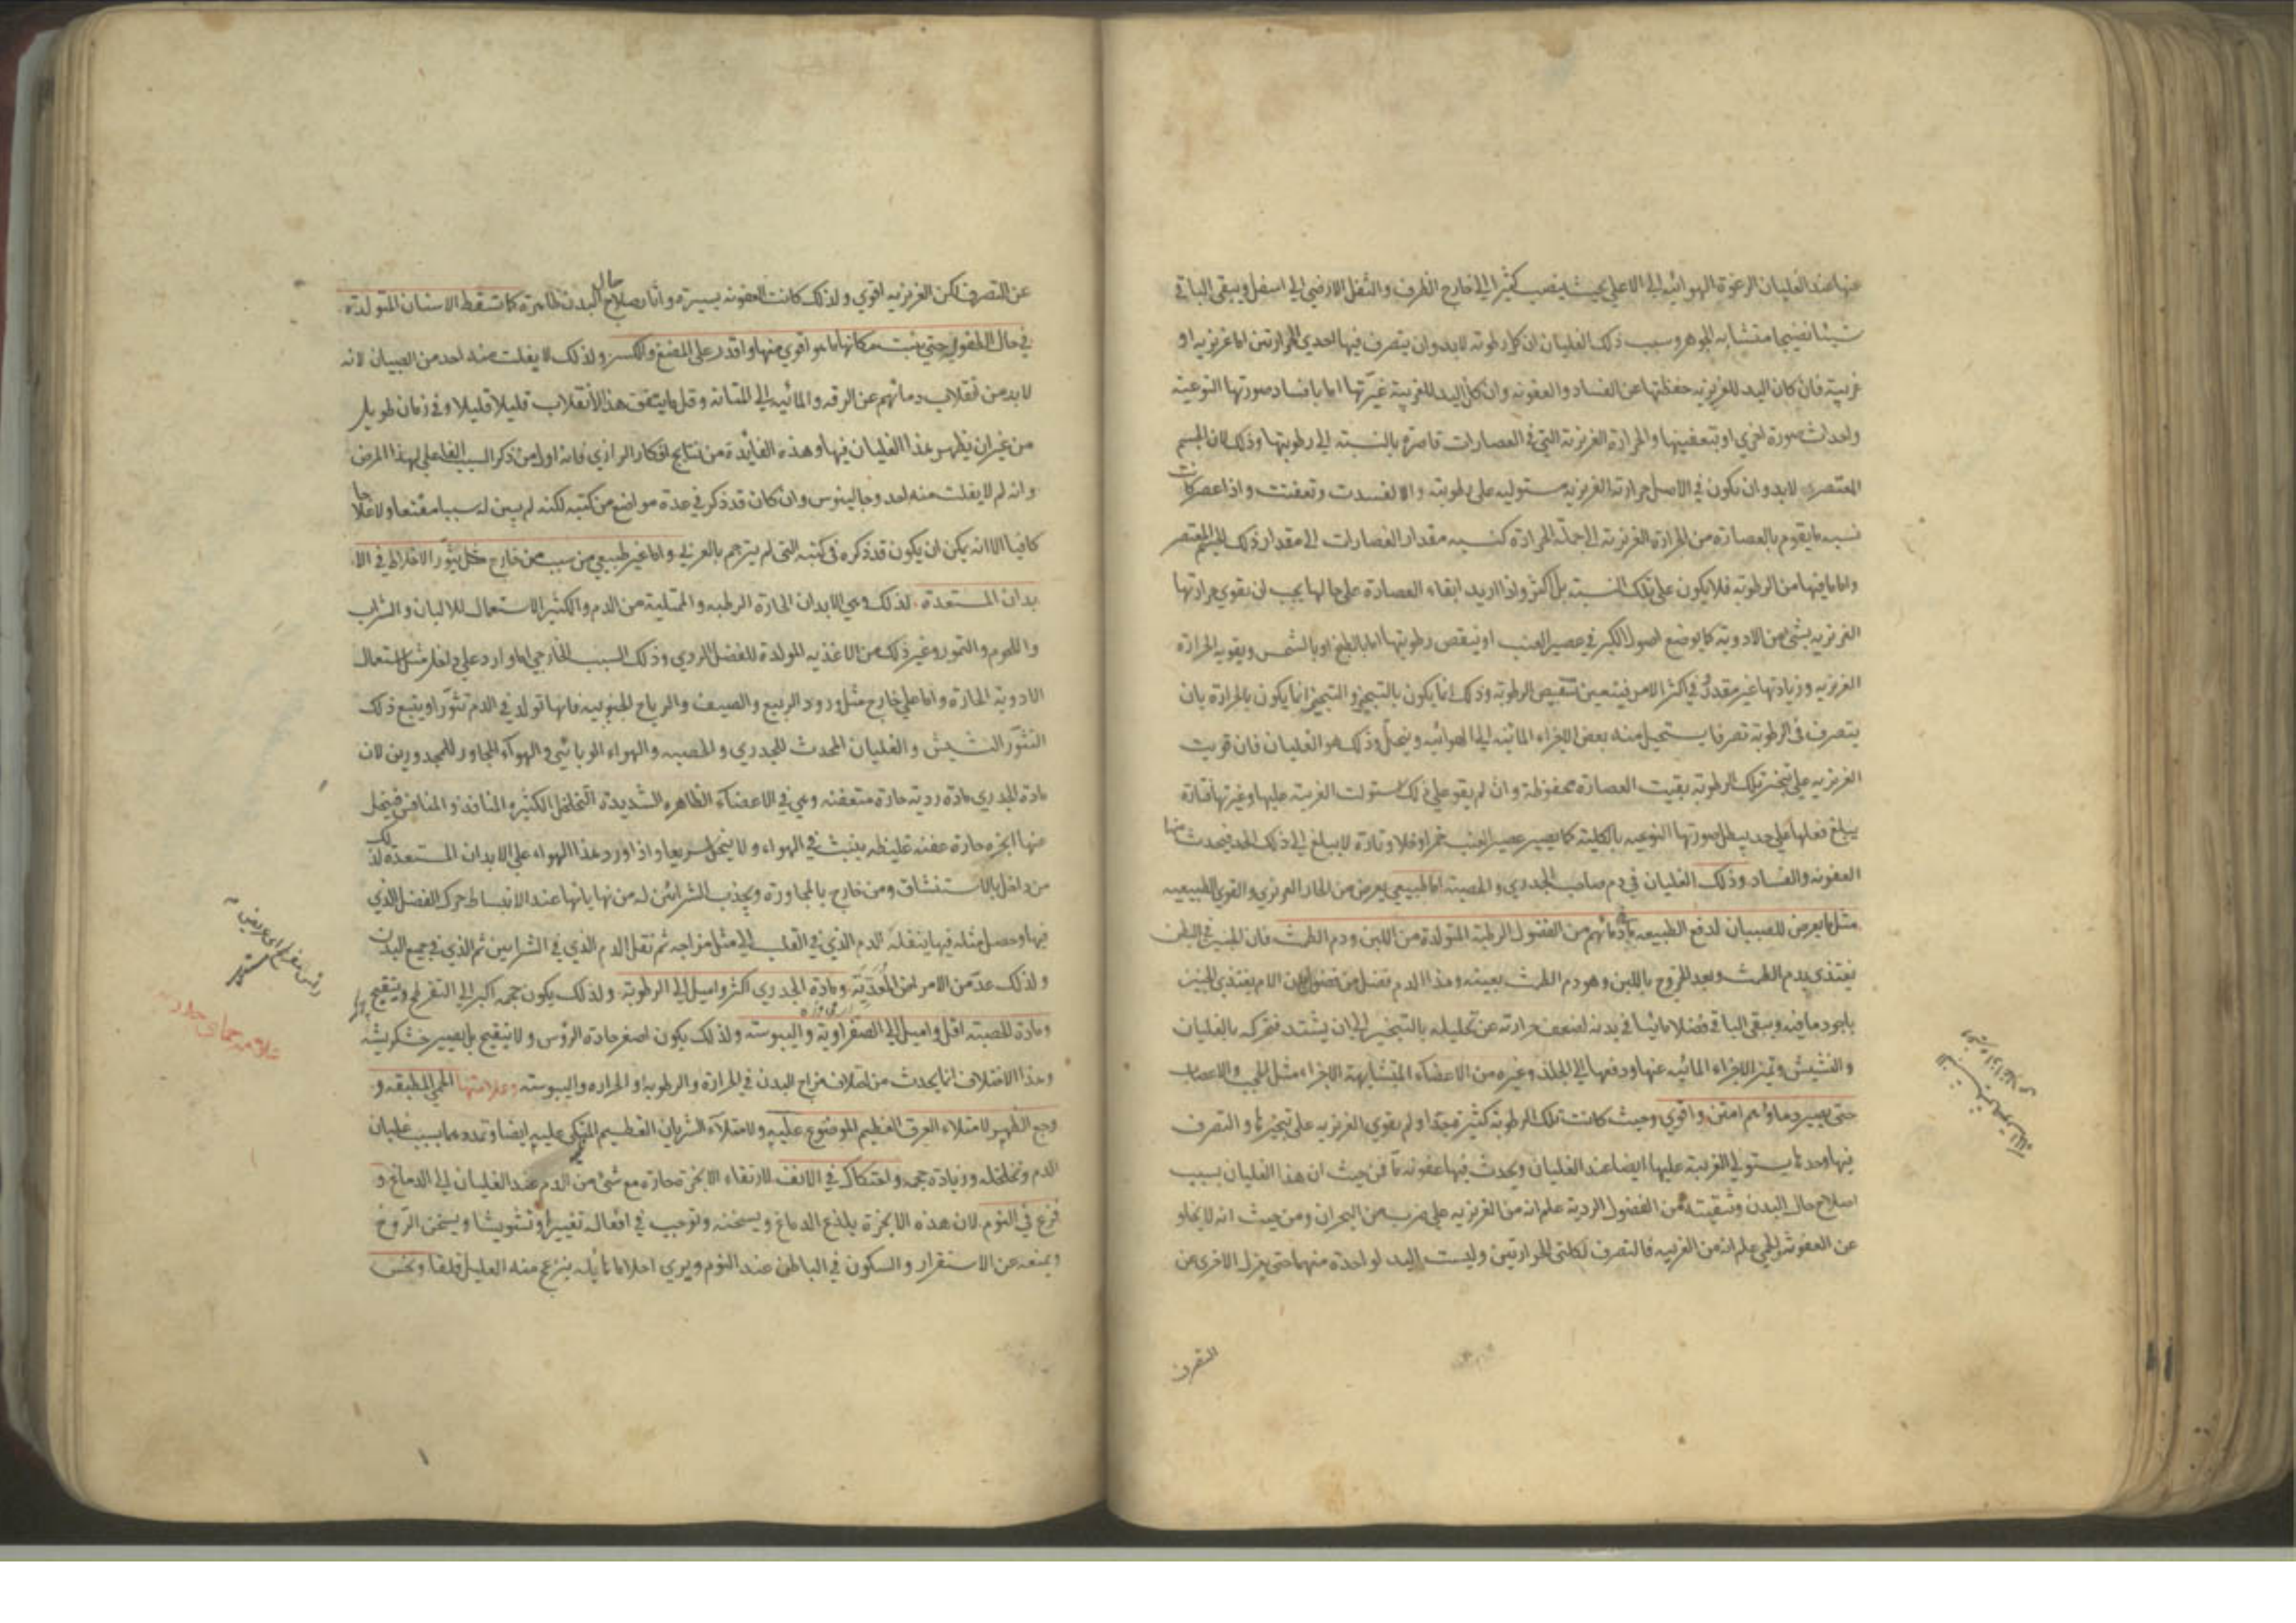 عنها عند الغليان الرغوة الهوائية الى الاعلى بحيث ينصب كثيرا الى خارج الظرف والثفل الارضي الى اسفل ويبقى الباقي
شيئا نضيجا متشابه الجوهر وسبب ذلك الغليان ان كل رطوبة لابد وان يتصرف فيها احدى الحرارتين اما غريزية او
غريبة فان كان اليد للغريزية حفظتها عن الفساد والعفونة وان كان اليد للغريبة غيرتها اما بافساد صورتها النوعية
واحداث صورة اخرى او بتعفينها والحرارة الغريزية التي في العصارات قاصرة بالنسبة الى رطوبتها وذلك لان الجسم
المعتصر لابد وان يكون في الاصل حرارته الغريزية مستولية على رطوبته والا لفسدت وتعفنت واذا عصر كانت
نسبة ما يقوم بالعصارة من الحرارة الغريزية الى جملة الحرارة كنسبة مقدار العصارات الى مقدار ذلك الجسم المعتصر
واما ما فيها من الرطوبة فلا يكون على تلك النسبة بل اكثر ولذا اريد ابقاء العصارة على حالها يجب ان يقوي حرارتها
الغريزية بشئ من الادوية كما يوضع اصول الكبر في عصير العنب او ينقص رطوبتها اما بالطبخ او بالشمس وتقوية الحرارة
الغريزية وزيادتها غير مقدور في اكثر الامر فيتعين تنقيص الرطوبة وذلك انما يكون بالتبخير والتبخير انما يكون بالحرارة بان
يتصرف في الرطوبة تصرفا يستحيل منه بعض الاجزاء المائية الى الهوائية ويتحلل وذلك هو الغليان فان قويت
الغريزية على تبخير تلك الرطوبة بقيت العصارة محفوظة وان لم يقو على ذلك استولت الغريبة عليها وغيرتها فتارة
يبلغ فعلها على حد يبطل صورتها النوعية بالكلية كما يصير عصير العنب خمرا او خلا وتارة لا يبلغ الى ذلك الحد فيحدث منها
العفونة والفساد وذلك الغليان في دم صاحب الجدري والحصبة اما طبيعي يعرض من الحار الغريزي والقوى الطبيعية
مثل ما يعرض للصبيان لدفع الطبيعة ما في دمائهم من الفضول الرطبة المتولدة من اللبن ودم الطمث فان الجنين في البطن
يغتذي بدم الطمث وبعد الخروج باللبن وهو دم الطمث بعينه وهذا الدم فضل من فضول بدن الام يغتذي الجنين
باجود ما فيه ويبقى الباقي فضلا مائيا في بدنه لضعف حرارته عن تحليله بالتبخير الى ان يشتد فتحركه بالغليان
والنشيش وتميز الاجزاء المائية عنها ودفعها الى الجلد وغيره من الاعضاء المتشابهة الاجزاء مثل الحجب والاعصاب
حتى يصير دماؤهم امتن واقوى وحيث كانت تلك الرطوبة كثيرة جدا ولم يقوى الغريزية على تبخيرها والتصرف
فيها وحدها يستولي الغريبة عليها ايضا عند الغليان ويحدث فيها عفونة ما فمن حيث ان هذا الغليان بسبب
اصلاح حال البدن وتنقيته من الفضول الردية علم انه من الغريزية على ضرب من البحران ومن حيث انه لا يخلو
عن العفونة والحمى علم انه من الغريبة فالتصرف لكلتي الحرارتين وليست اليد لواحدة منهما حتى يعزل الاخرى عن
التصرف
عن التصرف لكن الغريزية اقوى ولذلك كانت العفونة يسيرة واثار صلاح حال البدن ظاهرة كما تسقط الاسنان المتولدة
في حال الطفولية حتى ينبت مكانها ما هو اقوى منها واقدر على المضغ والكسر ولذلك لا يفلت منه احد من الصبيان لانه
لابد من انقلاب دمائهم عن الرقة والمائية الى المتانة وقل ما يتفق هذا الانقلاب قليلا قليلا وفي زمان طويل
من غير ان يظهر هذا الغليان فيها وهذه الفائدة من نتايج افكار الرازي فانه اول من ذكر السبب الفاعل لهذا المرض
وانه لم لا يفلت منه احد وجالينوس وان كان قد ذكر في عدة مواضع من كتبه لكنه لم يبين له سببا مقنعا ولا علاجا
كافيا الا انه يمكن ان يكون قد ذكره في كتبه التي لم يترجم بالعربي واما غير طبيعي من سبب من خارج مثل يثور الاخلاط في الا
بدان المستعدة لذلك وهي الابدان الحارة الرطبة والممتلية من الدم والكثير الاستعمال للالبان والشراب
واللحوم والتمور وغير ذلك من الاغذية المولدة للفضل الردي وذلك السبب الخارجي اما وارد على داخل مثل استعمال
الادوية الحارة واما على خارج مثل ورود الربيع والصيف والرياح الجنوبية فانها تولد في الدم تثورا ويتبع ذلك
التثور النشيش والغليان المحدث للجدري والحصبة والهواء الوبائي والهواء المجاور للمجدورين لان
مادة الجدري مادة ردية حارة متعفنة وهي في الاعضاء الظاهرة الشديدة التخلخل الكثيرة المنافذ والمنافس فيتحلل
منها ابخرة حارة عفنة غليظة ينبث في الهواء ولا يتحلل سريعا واذا ورد هذا الهواء على الابدان المستعدة لذلك
من داخل بالاستنشاق ومن خارج بالمجاورة ويجذب الشرائين له من نهاياتها عند الانبساط حرك الفضل الذي
فيها وحصل مثله فيها ينقله الدم الذي في القلب الى مثل مزاجه ثم نقل الدم الذي في الشرايين ثم الذي في جميع البدن
ولذلك عد من الامراض المعدية ومادة الجدري اكثر واميل الى الرطوبة ولذلك يكون حجمه اكبر الى التفرطح ويتقيح
ومادة الحصبة اقل واميل الى الصفراوية واليبوسة ولذلك يكون اصغر حادة الرؤس ولا يتقيح بل يصير خشكريشة
وهذا الاختلاف انما يحدث من اختلاف مزاج البدن في الحرارة والرطوبة او الحرارة واليبوسة وعلامتها الحمى المطبقة و
وجع الظهر لامتلاء العرق العظيم الموضوع عليه ولامتلاء الشريان العظيم المتكي عليه ايضا وتمددهما بسبب غليان
الدم وتخلخله وزيادة حجمه واحتكاك في الانف لارتقاء الابخرة حارة مع شئ من الدم عند الغليان الى الدماغ و
فزع في النوم لان هذه الابخرة يلذع الدماغ ويسخنه وتوجب في افعاله تغييرا وتشويشا ويسخن الروح
ويمنعه عن الاستقرار والسكون في الباطن عند النوم ويرى احلاما هايلة ينزعج منه العليل قلقا ونخس